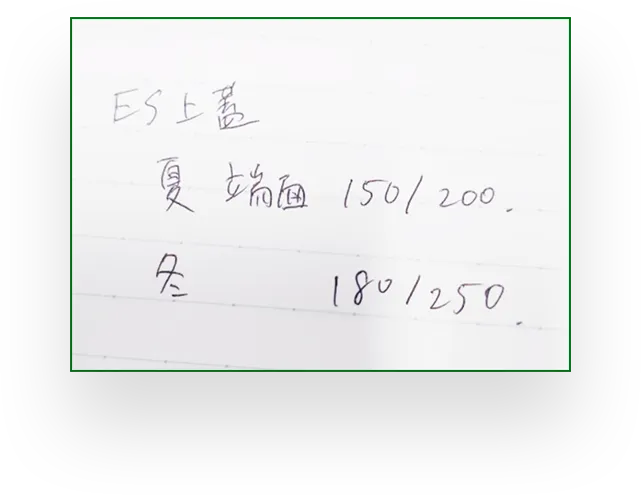 ES上蓋
夏 端面 150/200.
冬 180/250.